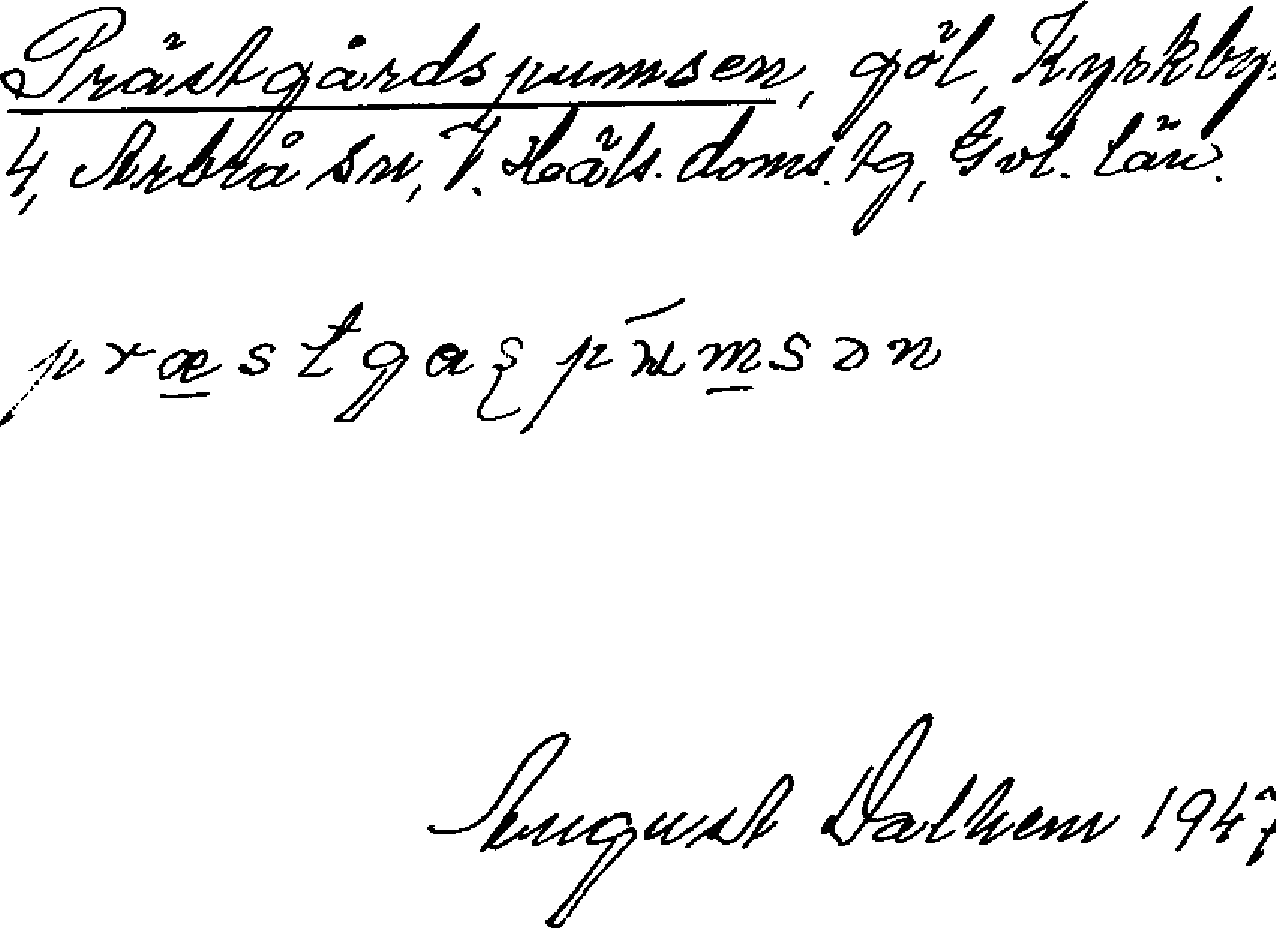 Prästgårdspumsen, göl, Kyrkbyn
4, Arbrå sn, V. Häls. doms. tg, Gvl. län.
præstgaʂpúmsən
August Dalhem 1947